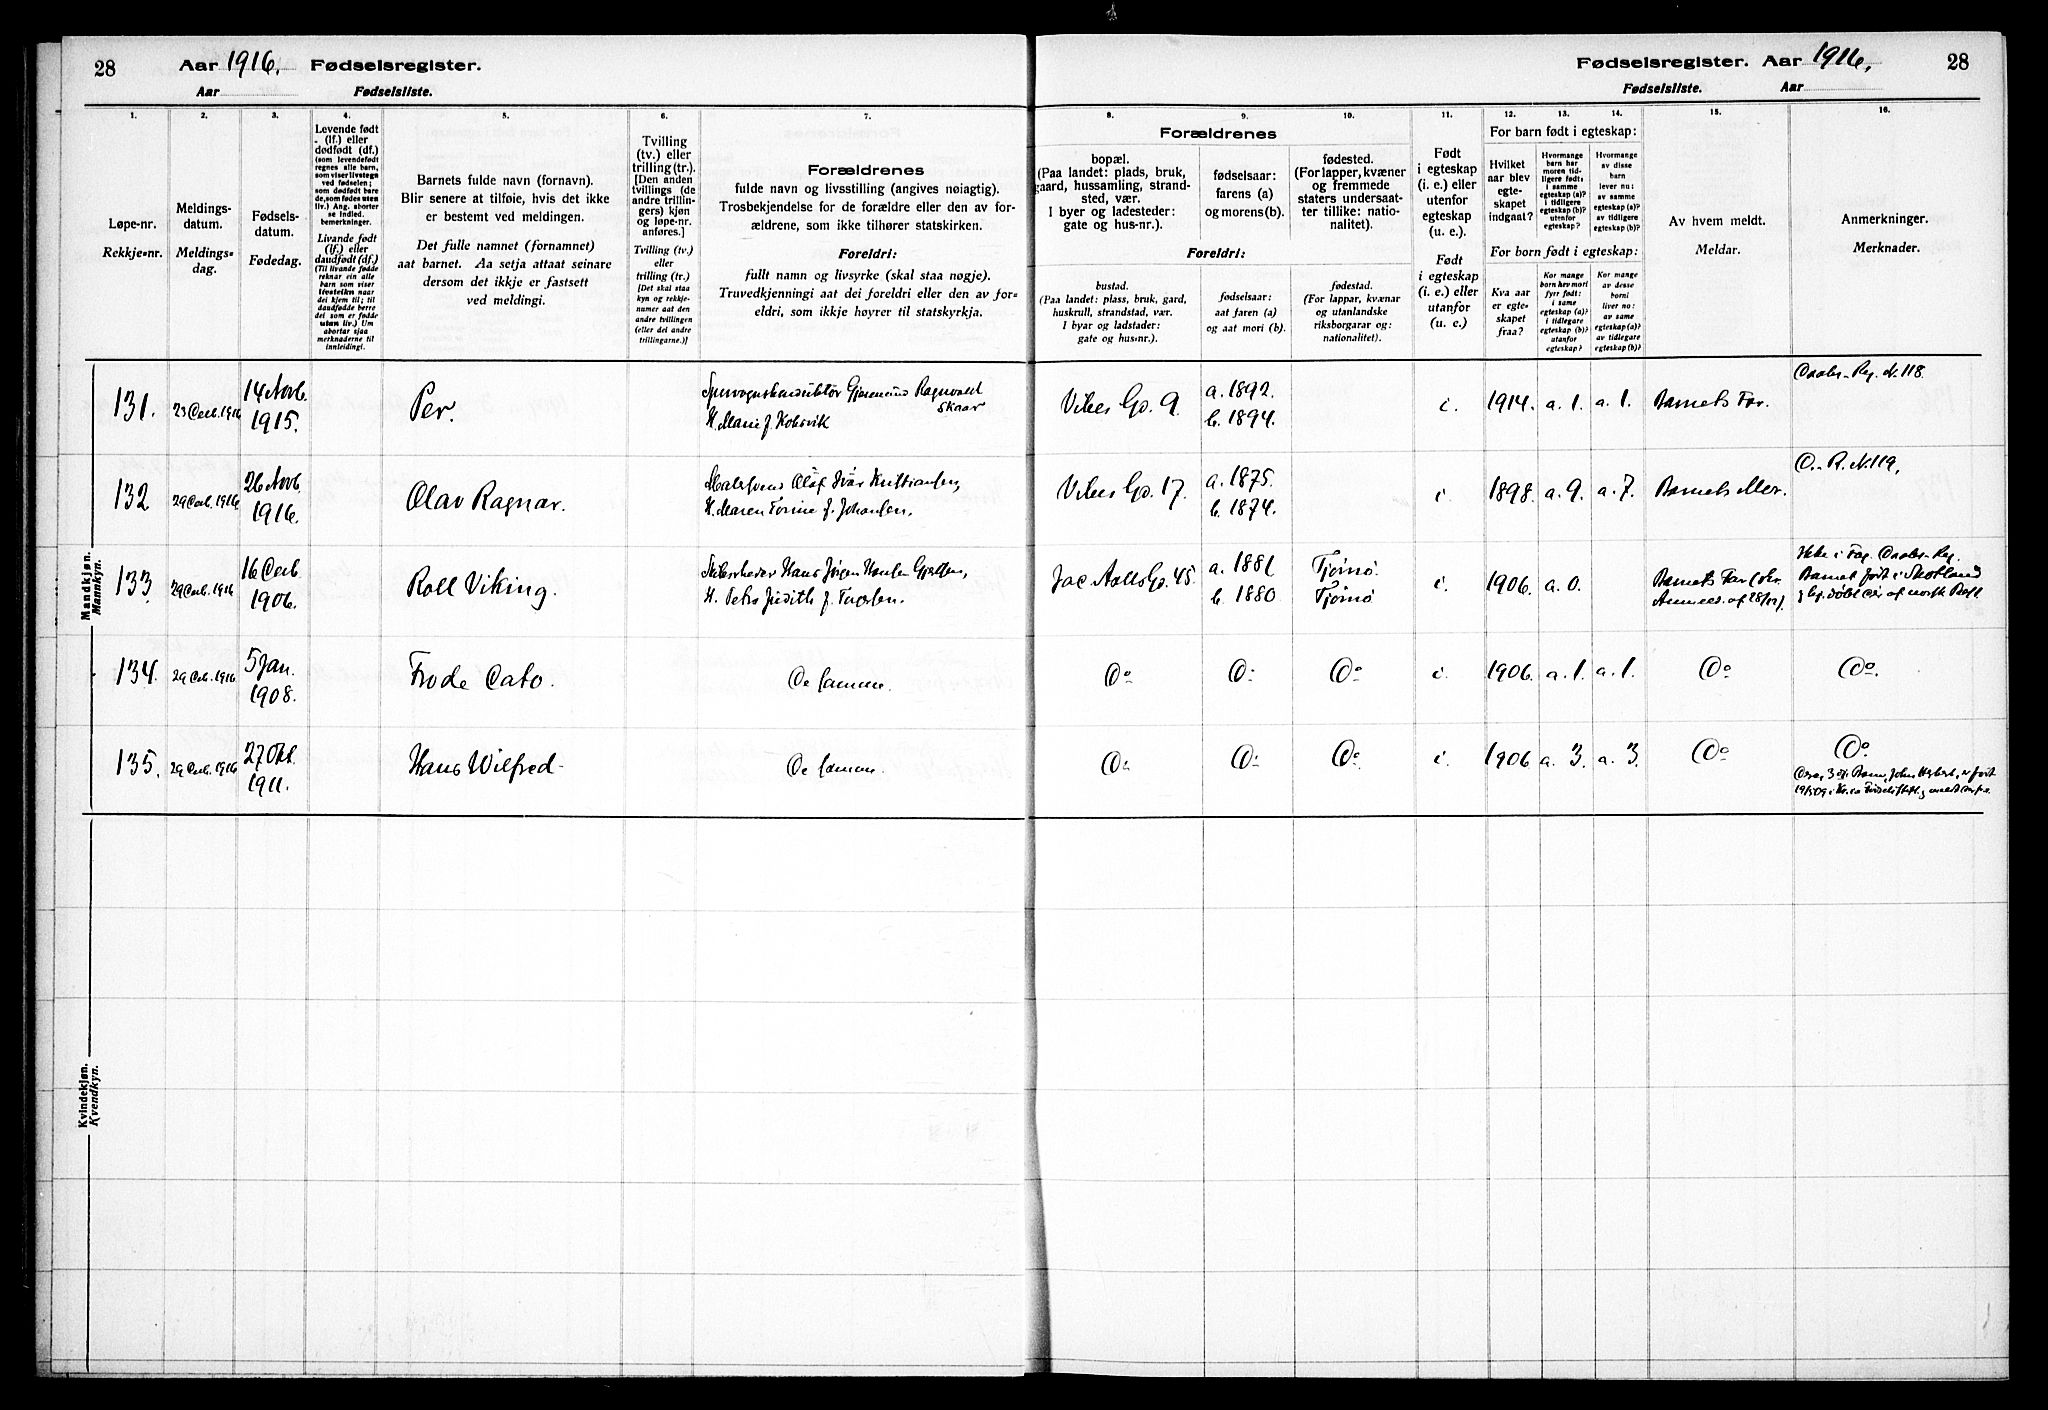 28 Aar 1916. Fødselsregister.
Aar Fødselsliste.
Fødselsregister. Aar 1916, 28
Fødselsliste. Aar
1. 2. 3. 4. 5. 6. 7.
Løpe-nr.
Rekkje-nr.
Meldings-
datum.
Meldings-
dag.
Fødsels-
datum.
Fødedag.
Levende født
(lf.) eller
dødfødt (df.)
(som levendefødt
regnes alle barn,
som viser livstegn
ved fødselen;
som dødfødt bare
de, som fødes uten
liv.) Ang. aborter
se indled.
bemerkninger.
Livande født
(lf.) eller
daudfødt (df.)
(Til livande fødde
reknar ein alle
barn som viser
livsteikn naar
dei kjem til; til
daudfødde berre
dei som er fødde
utan liv.) Um
abortar sjaa
merknaderne til
innleidingi.
Barnets fulde navn (fornavn).
Blir senere at tilføie, hvis det ikke
er bestemt ved meldingen.
Det fulle namnet (fornamnet)
aat barnet. Aa setja attaat seinare
dersom det ikkje er fastsett
ved meldingi.
Tvilling
(tv.) eller
trilling (tr.).
[Den anden
tvillings (de
andre trillin-
gers) kjøn
og løpe-nr.
anføres.]
Tvilling (tv.)
eller
trilling (tr.)
[Det skal staa
kyn og rekkje-
numer aat den
andre tvillingen
(eller dei andre
trillingarne.)]
Forældrenes
fulde navn og livsstilling (angives nøiagtig).
Trosbekjendelse for de forældre eller den av for-
ældrene, som ikke tilhører statskirken.
Foreldri:
fullt namn og livsyrke (skal staa nøgje).
Truvedkjenningi aat dei foreldri eller den av for-
eldri, som ikkje høyrer til statskyrkja.
8. 9. 10. 11. 12. 13. 14. 15. 16.
Forældrenes
bopæl.
(Paa landet: plads, bruk,
gaard, hussamling, strand-
sted, vær.
I byer og ladesteder:
gate og hus-nr.).
fødselsaar:
farens (a)
og morens (b).
fødested.
(For lapper, kvæner
og fremmede
staters undersaat-
ter tillike: natio-
nalitet).
Foreldri:
bustad.
(Paa landet: plass, bruk, gard,
huskrull, strandstad, vær.
I byar og ladstader:
gate og hus-nr.).
fødselsaar:
aat faren (a)
og aat mori (b).
fødestad.
(For lappar, kvænar
og utanlandske
riksborgarar og:
nationalitet).
Født
i egteskap
(i. e.) eller
utenfor
egteskap
(u. e.).
Født
i egteskap
(i. e.) eller
utanfor
(u. e.)
For barn født i egteskap:
Hvilket
aar blev
egte-
skapet
indgaat?
Hvormange
barn har
moren tid-
ligere født:
i samme
egteskap (a)?
i tidligere
egteskap (b)?
utenfor
egteskap?
Hvormange
av disse
barn
lever nu:
av samme
egteskap (a)?
av tidligere
egteskap (b)?
For born født i egteskap:
Kva aar
er egte-
skapet
fraa?
Kor mange
born hev mori
fyrr født:
i same
egteskap (a)?
i tidlegare
egteskap (b)?
utanfor
egteskap?
Kor mange
av desse
borni
liver no:
av same
egteskap (a)?
av tidlegare
egteskap (b)?
Av hvem meldt.
Meldar.
Anmerkninger.
Merknader.
Mandkjøn.
Mannkyn.
131. 23 Decb. 1916 14 Novb. 1915. Per. Gjermund Ragnvald
Skaar
H. Marie f. Kolsvik Vibes Gd. 9. a. 1892. b. 1894. i. 1914. a. 1. a. 1. Barnets Far. Daabs-Reg. N. 118.
132 29 Decb. 1916 26 Novb. 1916. Olav Ragnar. Malersvend Olaf Ivar Kristiansen,
H. Maren Torine f. Johansen. Vibes Gd. 17. a. 1875. b. 1874. i. 1898. a. 9. a. 7. Barnets Mor. D.-R. N. 119,
133. 29 Decb. 1916 16 Decb. 1906. Rolf Viking. Hans Jørgen Hansen
H. Petra Judith f. Jac Aalls Gd. 45. a. 1881 b. 1880 Tjømø. Tjømø i. 1906. a. 0. Barnets Far
af 28/12). Ikke i Daabs-Reg.
Barnet født i Skotland
af norsk
134. 29 Decb. 1916 5 Jan. 1908. Frode Cato. De samme. Do Do Do i. 1906. a. 1. a. 1. Do Do.
135. 29 Decb. 1916 27 Okt. 1911. Hans Wilfred. De samme. Do Do Do i. 1906 a. 3. a. 3. Do Do.
Barn, John Herbert, er født
Kvindekjøn.
Kvendkyn.